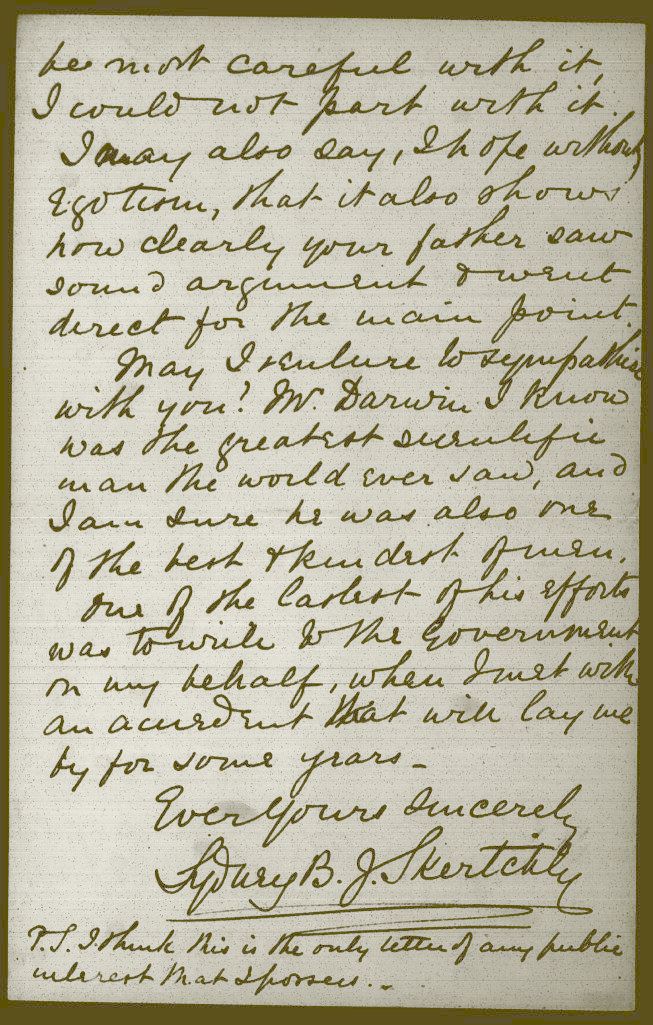 be most careful with it,
I could not part with it.
I may also say, I hope without
Egotism, that it also shows
how clearly your father saw
sound argument & went
direct for the main point.
May I venture to sympathise
with you? Mr. Darwin I know
was the greatest scientific
man the world ever saw, and
I am sure he was also one
of the best & kindest of men.
One of the lastest of his efforts
was to write to the Government
on my behalf, when I met with
an accident that will lay me
by for some years –
Ever Yours Sincerely
Sydney B. J. Skertchly
P.S. I think this is the only letter of any public
interest that I possess. –